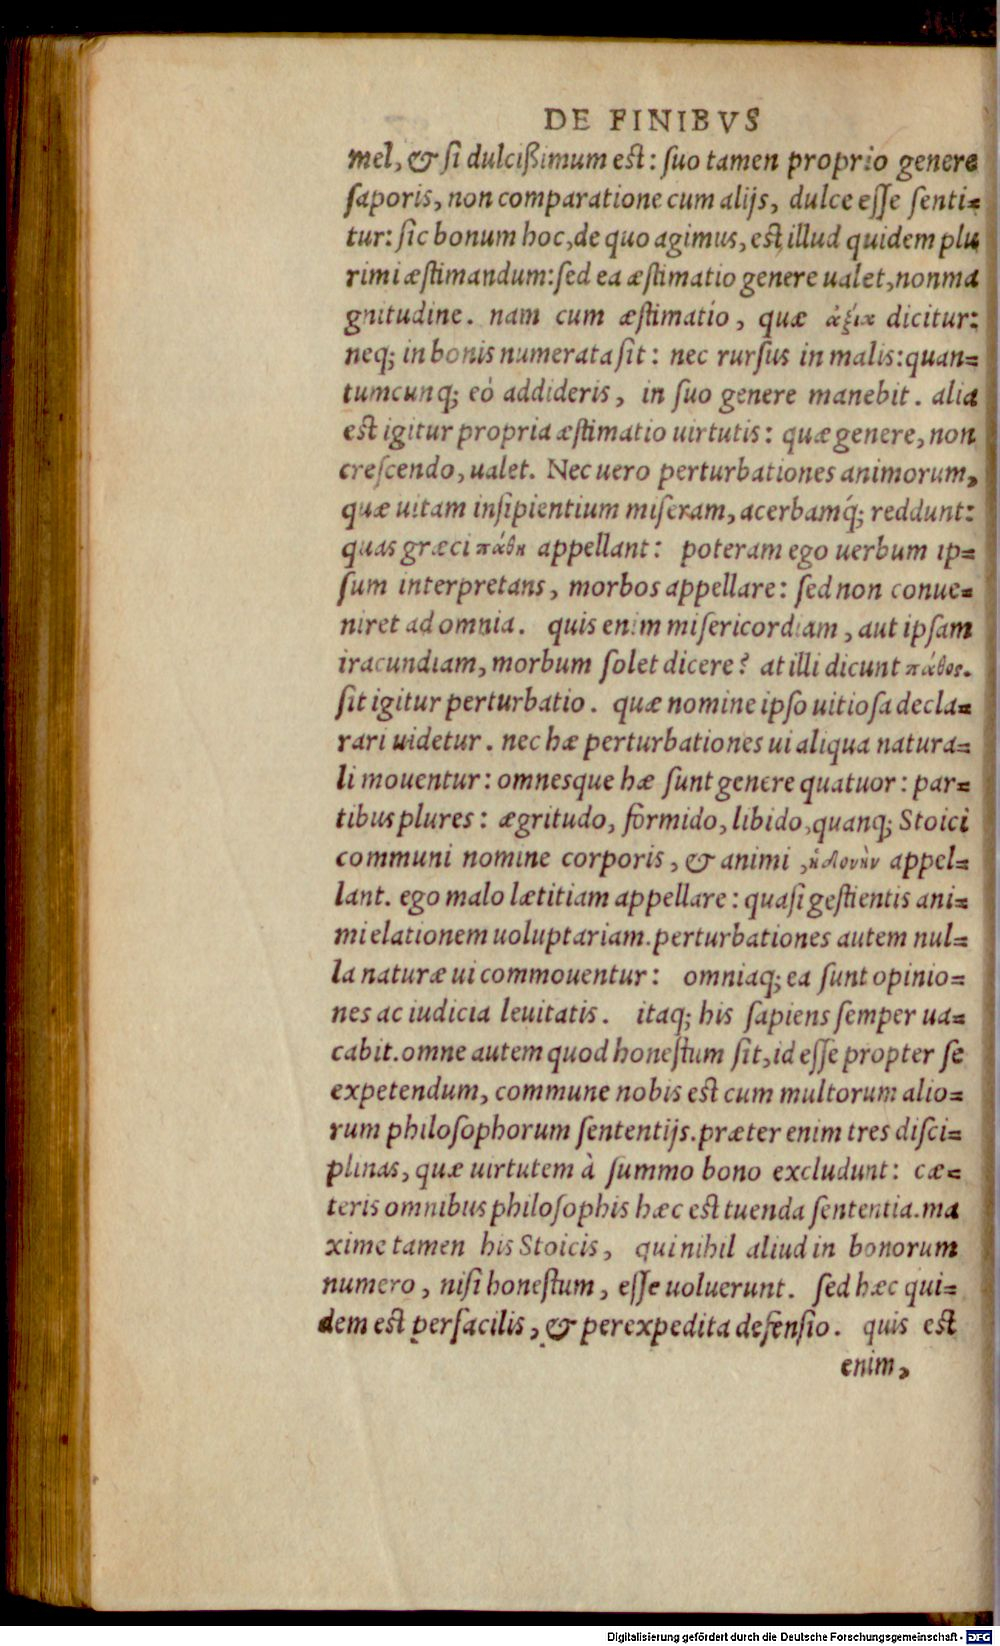 DE FINIBVS
mel, & ſi dulcißimum est: ſuo tamen proprio genere
ſaporis, non comparatione cum alijs, dulce eſſe ſenti=
tur: ſic bonum hoc, de quo agimus, est illud quidem plu
rimi æſtimandum: ſed ea æſtimatio genere ualet, non ma
gnitudine. nam cum æſtimatio, quæ ἀξια dicitur:
neq; in bonis numerata ſit: nec rurſus in malis: quan=
tumcunq; eò addideris, in ſuo genere manebit. alia
est igitur propria æſtimatio uirtutis: quæ genere, non
creſcendo, ualet. Nec uero perturbationes animorum,
quæ uitam inſipientium miſeram, acerbamq́; reddunt:
quas græci πάθη appellant: poteram ego uerbum ip=
ſum interpretans, morbos appellare: ſed non conue=
niret ad omnia. quis enim miſericordiam, aut ipſam
iracundiam, morbum ſolet dicere? at illi dicunt πάθος.
ſit igitur perturbatio. quæ nomine ipſo uitioſa decla=
rari uidetur. nec hæ perturbationes ui aliqua natura=
li mouentur: omnesque hæ ſunt genere quatuor: par=
tibus plures: ægritudo, formido, libido, quanq; Stoici
communi nomine corporis, & animi, ἡδονὴν appel=
lant. ego malo lætitiam appellare: quaſi geſtientis ani=
mi elationem uoluptariam. perturbationes autem nul=
la naturæ ui commouentur: omniaq; ea ſunt opinio=
nes ac iudicia leuitatis. itaq; his ſapiens ſemper ua=
cabit. omne autem quod honeſtum ſit, id eſſe propter ſe
expetendum, commune nobis est cum multorum alio=
rum philoſophorum ſententijs. præter enim tres diſci=
plinas, quæ uirtutem à ſummo bono excludunt: cæ=
teris omnibus philoſophis hæc est tuenda ſententia. ma
xime tamen his Stoicis, qui nihil aliud in bonorum
numero, niſi honeſtum, eſſe uoluerunt. ſed hæc qui=
dem est perfacilis, & perexpedita defenſio. quis est
enim,
Digitalisierung gefördert durch die Deutsche Forschungsgemeinschaft - DFG